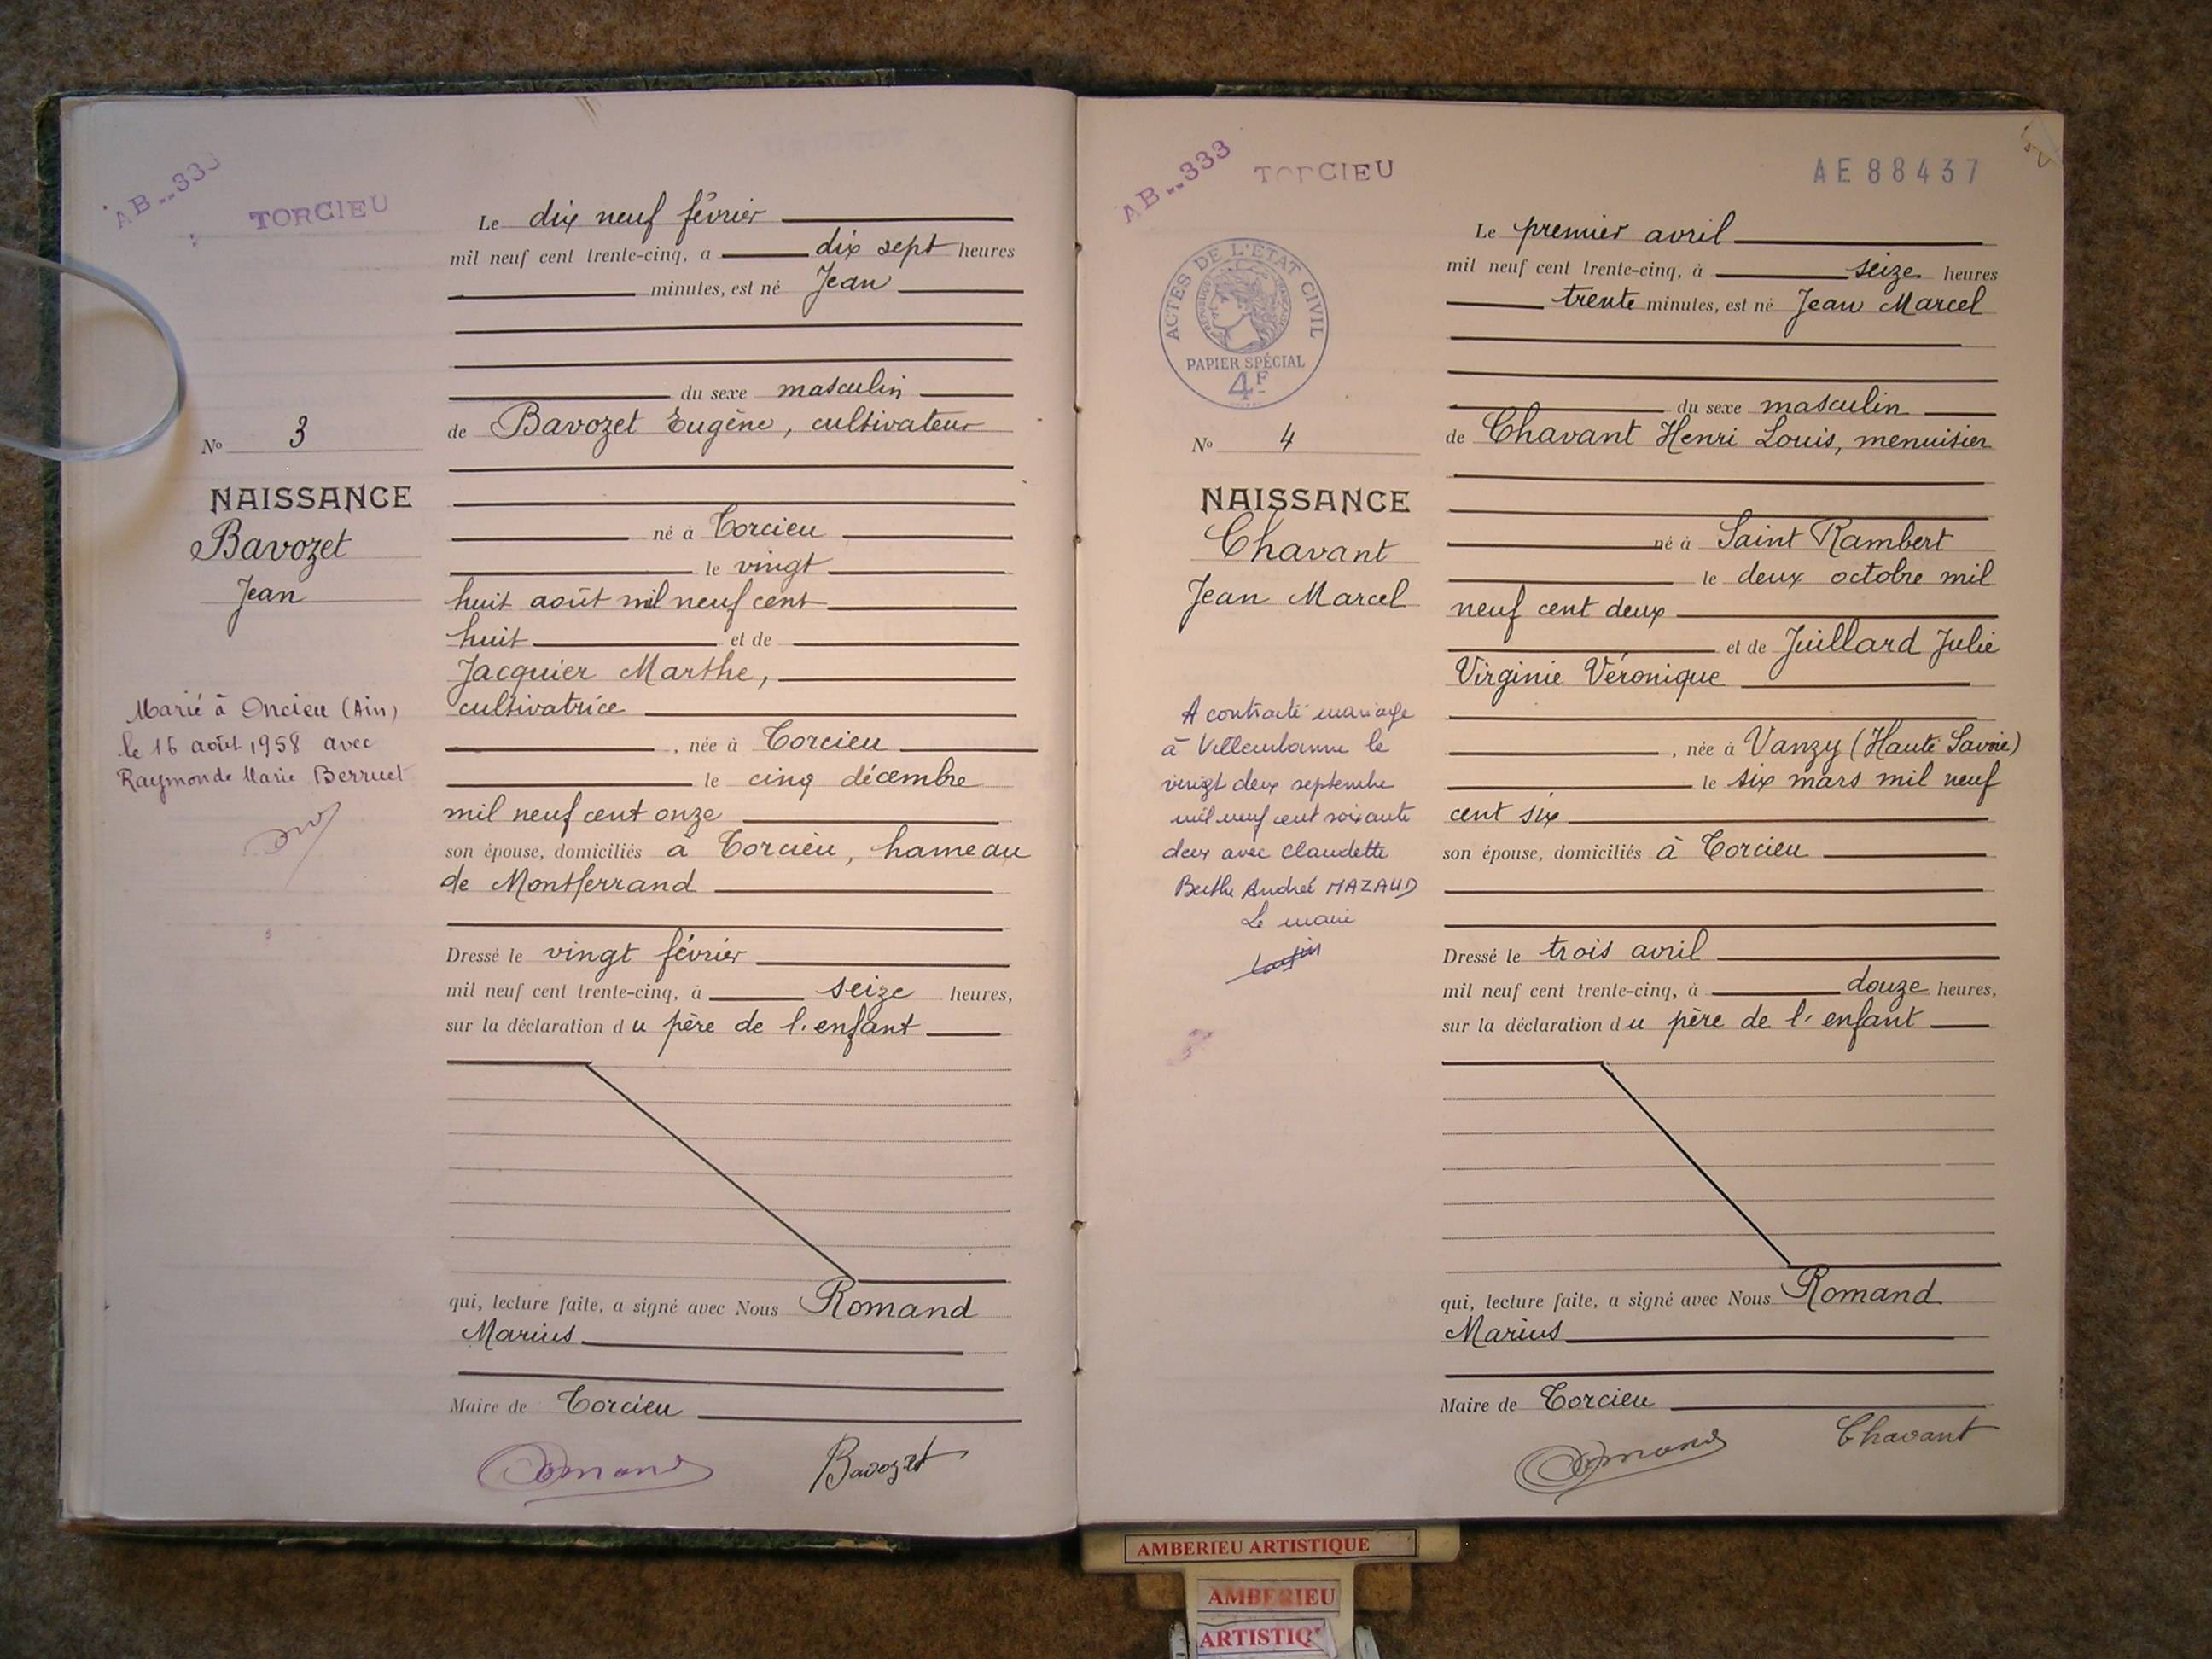 AB..333
TORCIEU
Le dix neuf février
mil neuf cent trente-cinq, à dix sept heures
minutes, est né Jean
du sexe masculin
de Bavozet Eugène, cultivateur
né à Torcieu
le vingt
huit août mil neuf cent
huit et de
Jacquier Marthe,
cultivatrice
, née à Torcieu
le cinq décembre
mil neuf cent onze
son épouse, domiciliés à Torcieu, hameau
de Montferrand
Dressé le vingt février
mil neuf cent trente-cinq, à seize heures,
sur la déclaration du père de l'enfant
qui, lecture faite, a signé avec Nous Romand
Marius
Maire de Torcieu
Romand Bavozet
No 3
NAISSANCE
Bavozet
Jean
Marié à Oncieu (Ain)
le 16 août 1958 avec
Raymonde Marie Berruet
AB..333
TORCIEU
AE88437
ACTES DE L'ÉTAT CIVIL
PAPIER SPÉCIAL
4F
No 4
NAISSANCE
Chavant
Jean Marcel
A contracté mariage
à Villeurbanne le
vingt deux septembre
mil neuf cent soixante
deux avec Claudette
Berthe Andrée MAZAUD
Le maire
Le premier avril
mil neuf cent trente-cinq, à seize heures
trente minutes, est né Jean Marcel
du sexe masculin
de Chavant Henri Louis, menuisier
né à Saint Rambert
le deux octobre mil
neuf cent deux
et de Juillard Julie
Virginie Véronique
, née à Vanzy (Haute Savoie)
le six mars mil neuf
cent six
son épouse, domiciliés à Torcieu
Dressé le trois avril
mil neuf cent trente-cinq, à douze heures,
sur la déclaration du père de l'enfant
qui, lecture faite, a signé avec Nous Romand
Marius
Maire de Torcieu
Romand Chavant
AMBERIEU ARTISTIQUE
AMBERIEU
ARTISTIQ